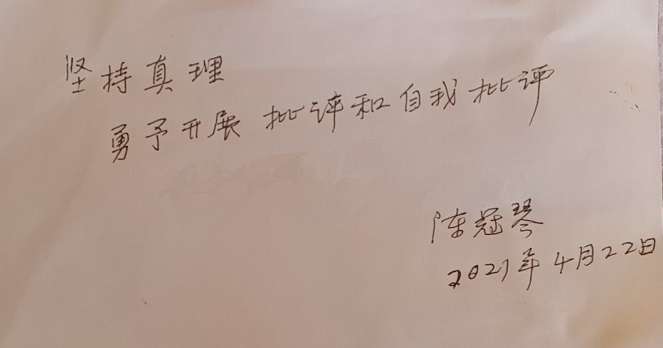 坚持真理
勇予开展 批评和自我批评
陈冠琴
2021年4月22日